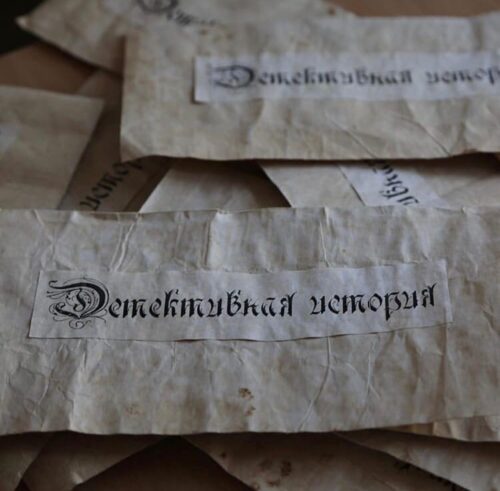 Детективная истор
Детективная история